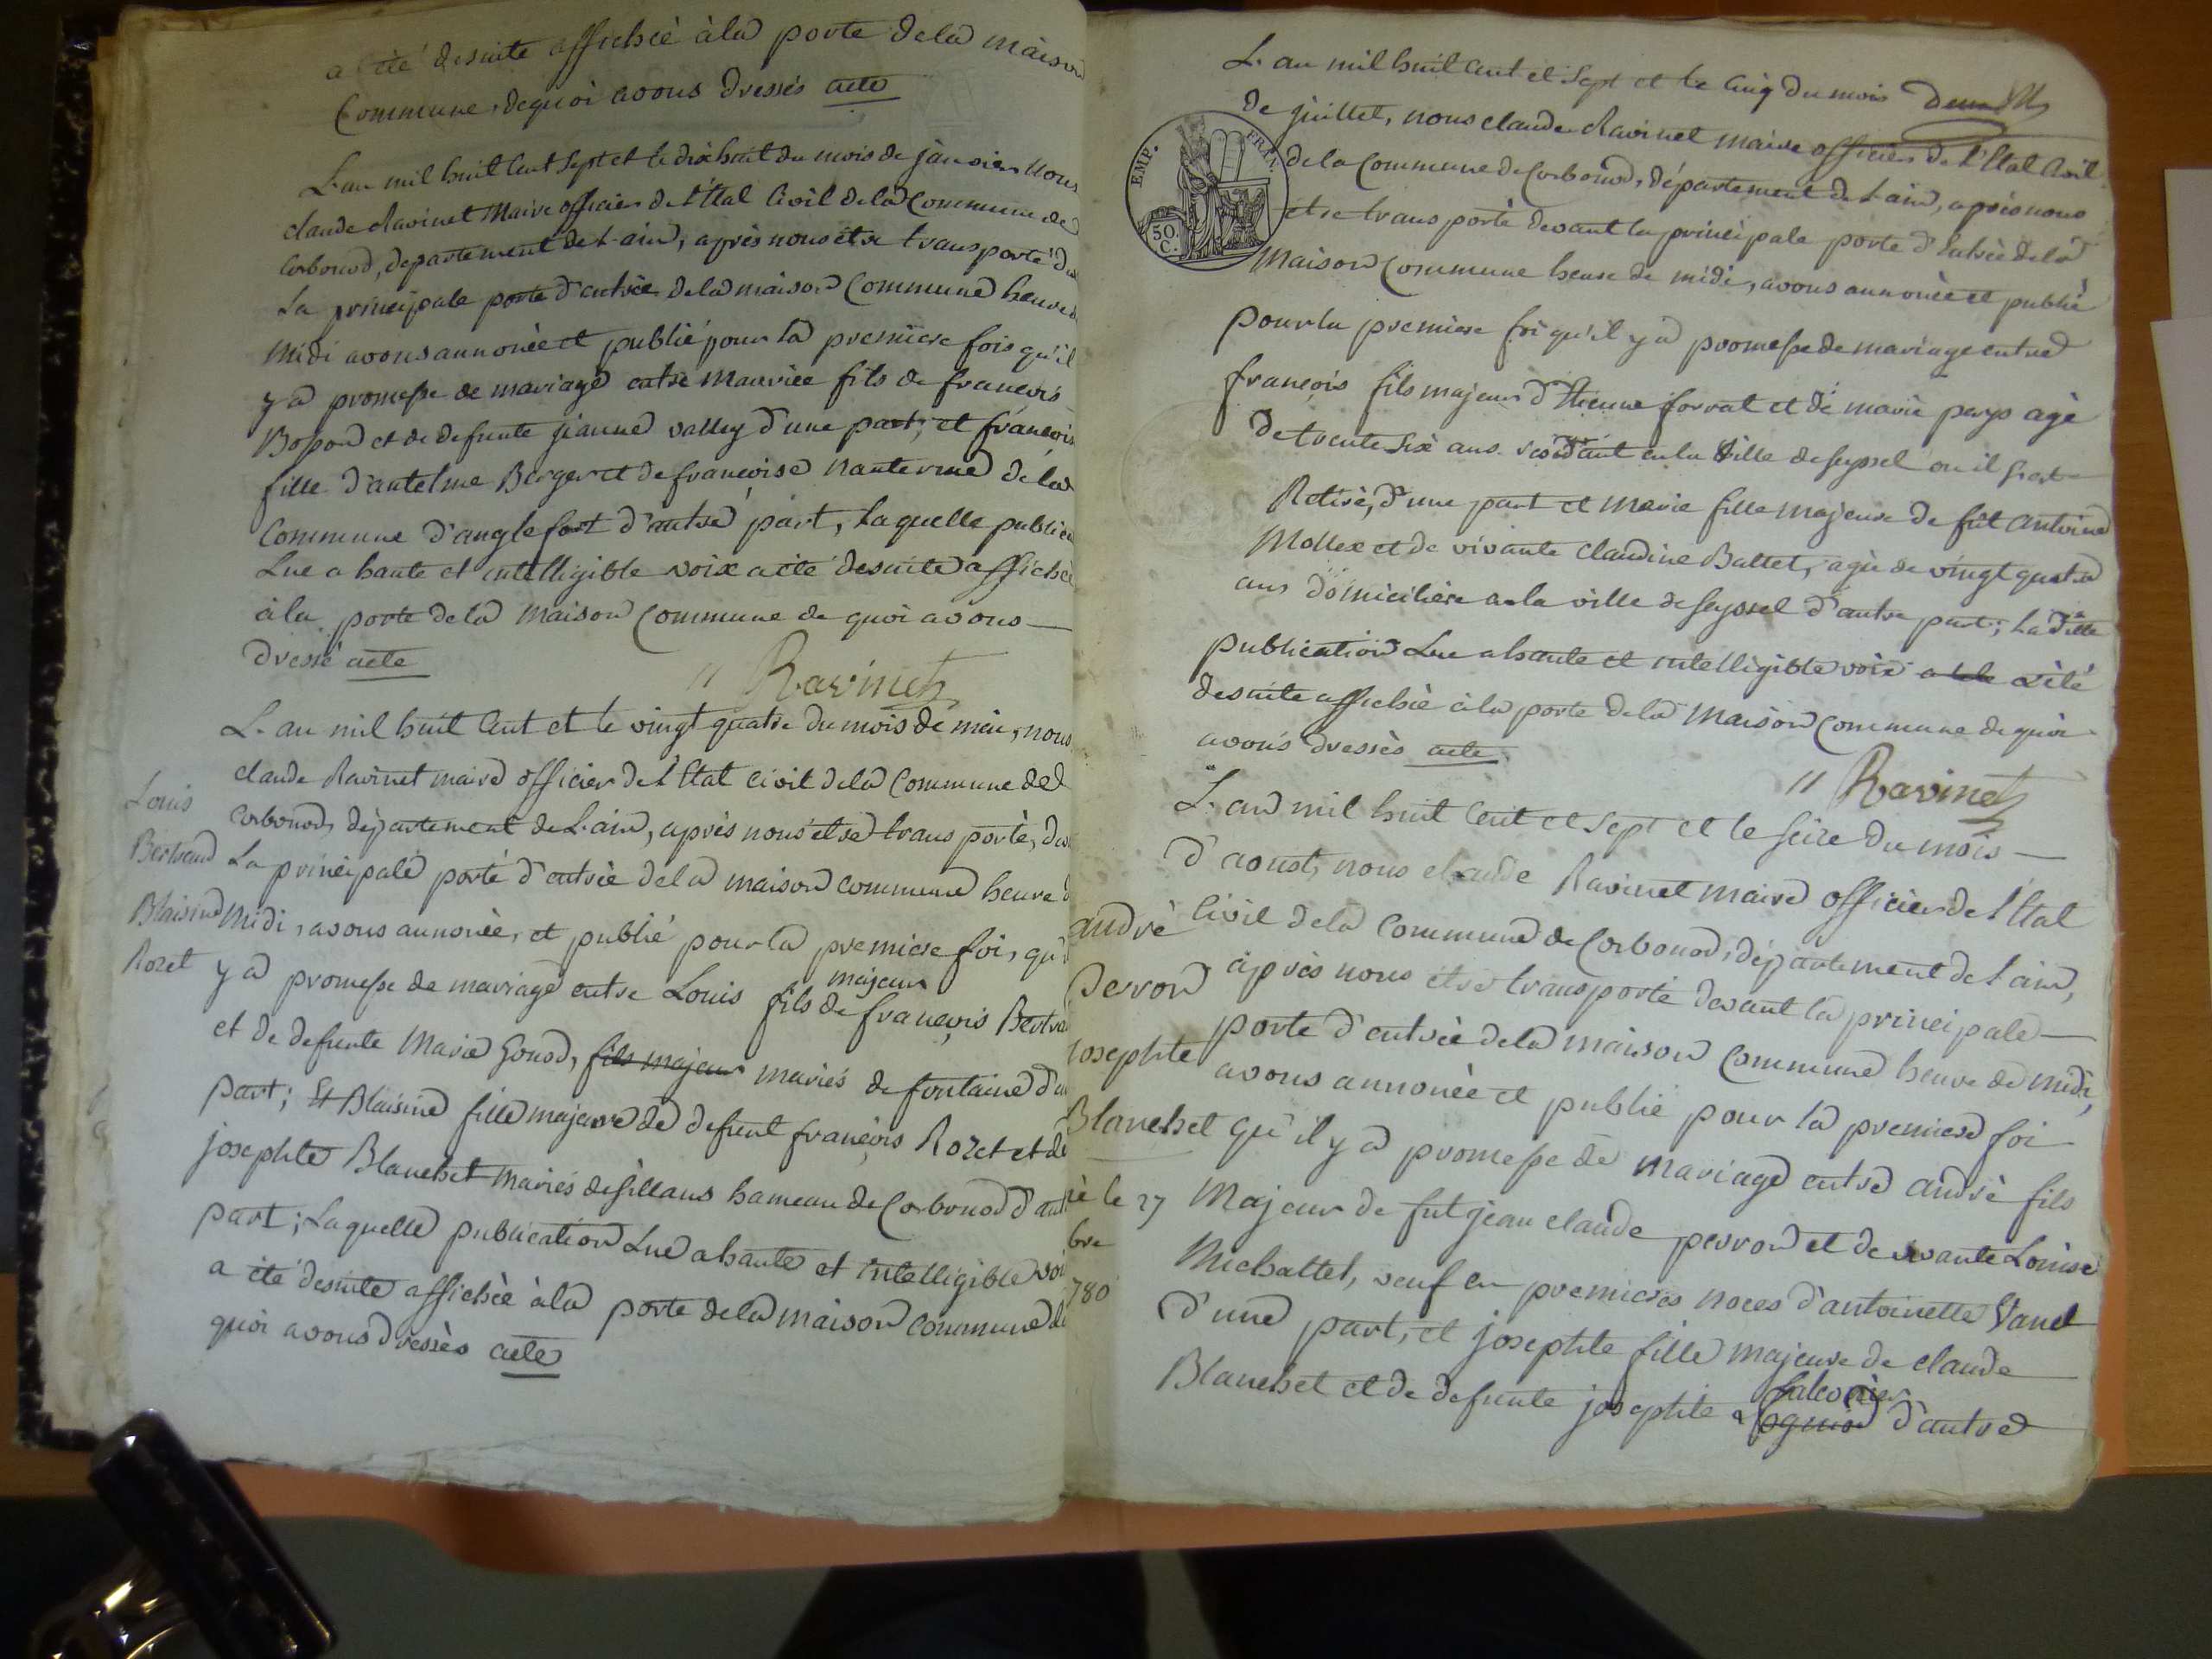 a été desuite affichée à la porte de la maison
Commune, de quoi avons dressés acte
L'an mil huit cent sept et le dix huit du mois de janvier nous
claude Ravinet Maire officier de l'Etat Civil de la Commune de
Corbonod, departement de l'ain, après nous etre transporté
La principale porte d'entrée de la maison Commune heure de
Midi avons annoncée et publié pour la premiere fois qu'il
y a promesse de mariage entre maurice fils de francois
Bosson et de defunte jeanne valley d'une part; et francois
fille d'antelme Berger et de francoise nanterme de la
Commune d'anglefort d'autre part, laquelle
Lue a haute et intelligible voix a été desuite affichée
à la porte de la maison Commune de quoi avons
dressé acte
Ravinet
L'an mil huit cent et le vingt quatre du mois de mai, nous
claude Ravinet maire officier de l'Etat civil de la Commune de
Corbonod, département de L'ain, après nous etre transporté,
La principale porte d'entrée de la maison commune heure
Midi, avons annoncée, et publié pour la premiere foi,
majeur
y a promesse de mariage entre Louis fils de francois
et de defunte Marie Gonod, fils majeur mariés de fontaine
part; Et Blaisine fille majeure de defunt francois Rozet et de
josephte Blanchet mariés de sillans hameau de Corbonod
part; Laquelle publication Lue a haute et intelligible
a été desuite affichée à la porte de la maison commune de
quoi avons dressés acte
Louis
Bertrand
Blaisine
Rozet
L'an mil huit cent et sept et le cinq du mois
de juillet, nous claude Ravinet maire officier de l'Etat Civil
de la Commune de Corbonod, département de L'ain, après nous
etre transporté devant la principale porte d'Entrée de la
Maison Commune heure de midi, avons annoncée et publié
pour la premiere foi qu'il y a promesse de mariage entre
francois fils majeur d'Etienne forrat et de marie pays agé
de trente six ans residant en la Ville de seyssel ou il s'est
Retiré, d'une part et marie fille majeure de fut antoine
Mollex et de vivante claudine Ballet, agée de vingt quatre
ans domiciliée a la ville de seyssel d'autre part; La dite
publication Lue a haute et intelligible voix a été
desuite affichée à la porte de la maison Commune de quoi
avons dressés acte
Ravinet
L'an mil huit cent et sept et le seize du mois
d'aoust, nous claude Ravinet maire officier de l'Etat
Civil de la Commune de Corbonod, département de l'ain,
après nous etre transporté devant la principale
porte d'entrée de la maison Commune heure de midi,
avons annoncée et publié pour la premiere foi
qu'il y a promesse de mariage entre andré fils
Majeur de fut jean claude perron et de vivante Louise
Michallet, veuf en premieres noces d'antoinette Vanel
d'une part, et josephte fille majeure de claude
falconier
Blanchet et de defunte josephte d'autre
andré
perron
josephte
Blanchet
le 27
bre
780
EMP. FRAN.
50. C.